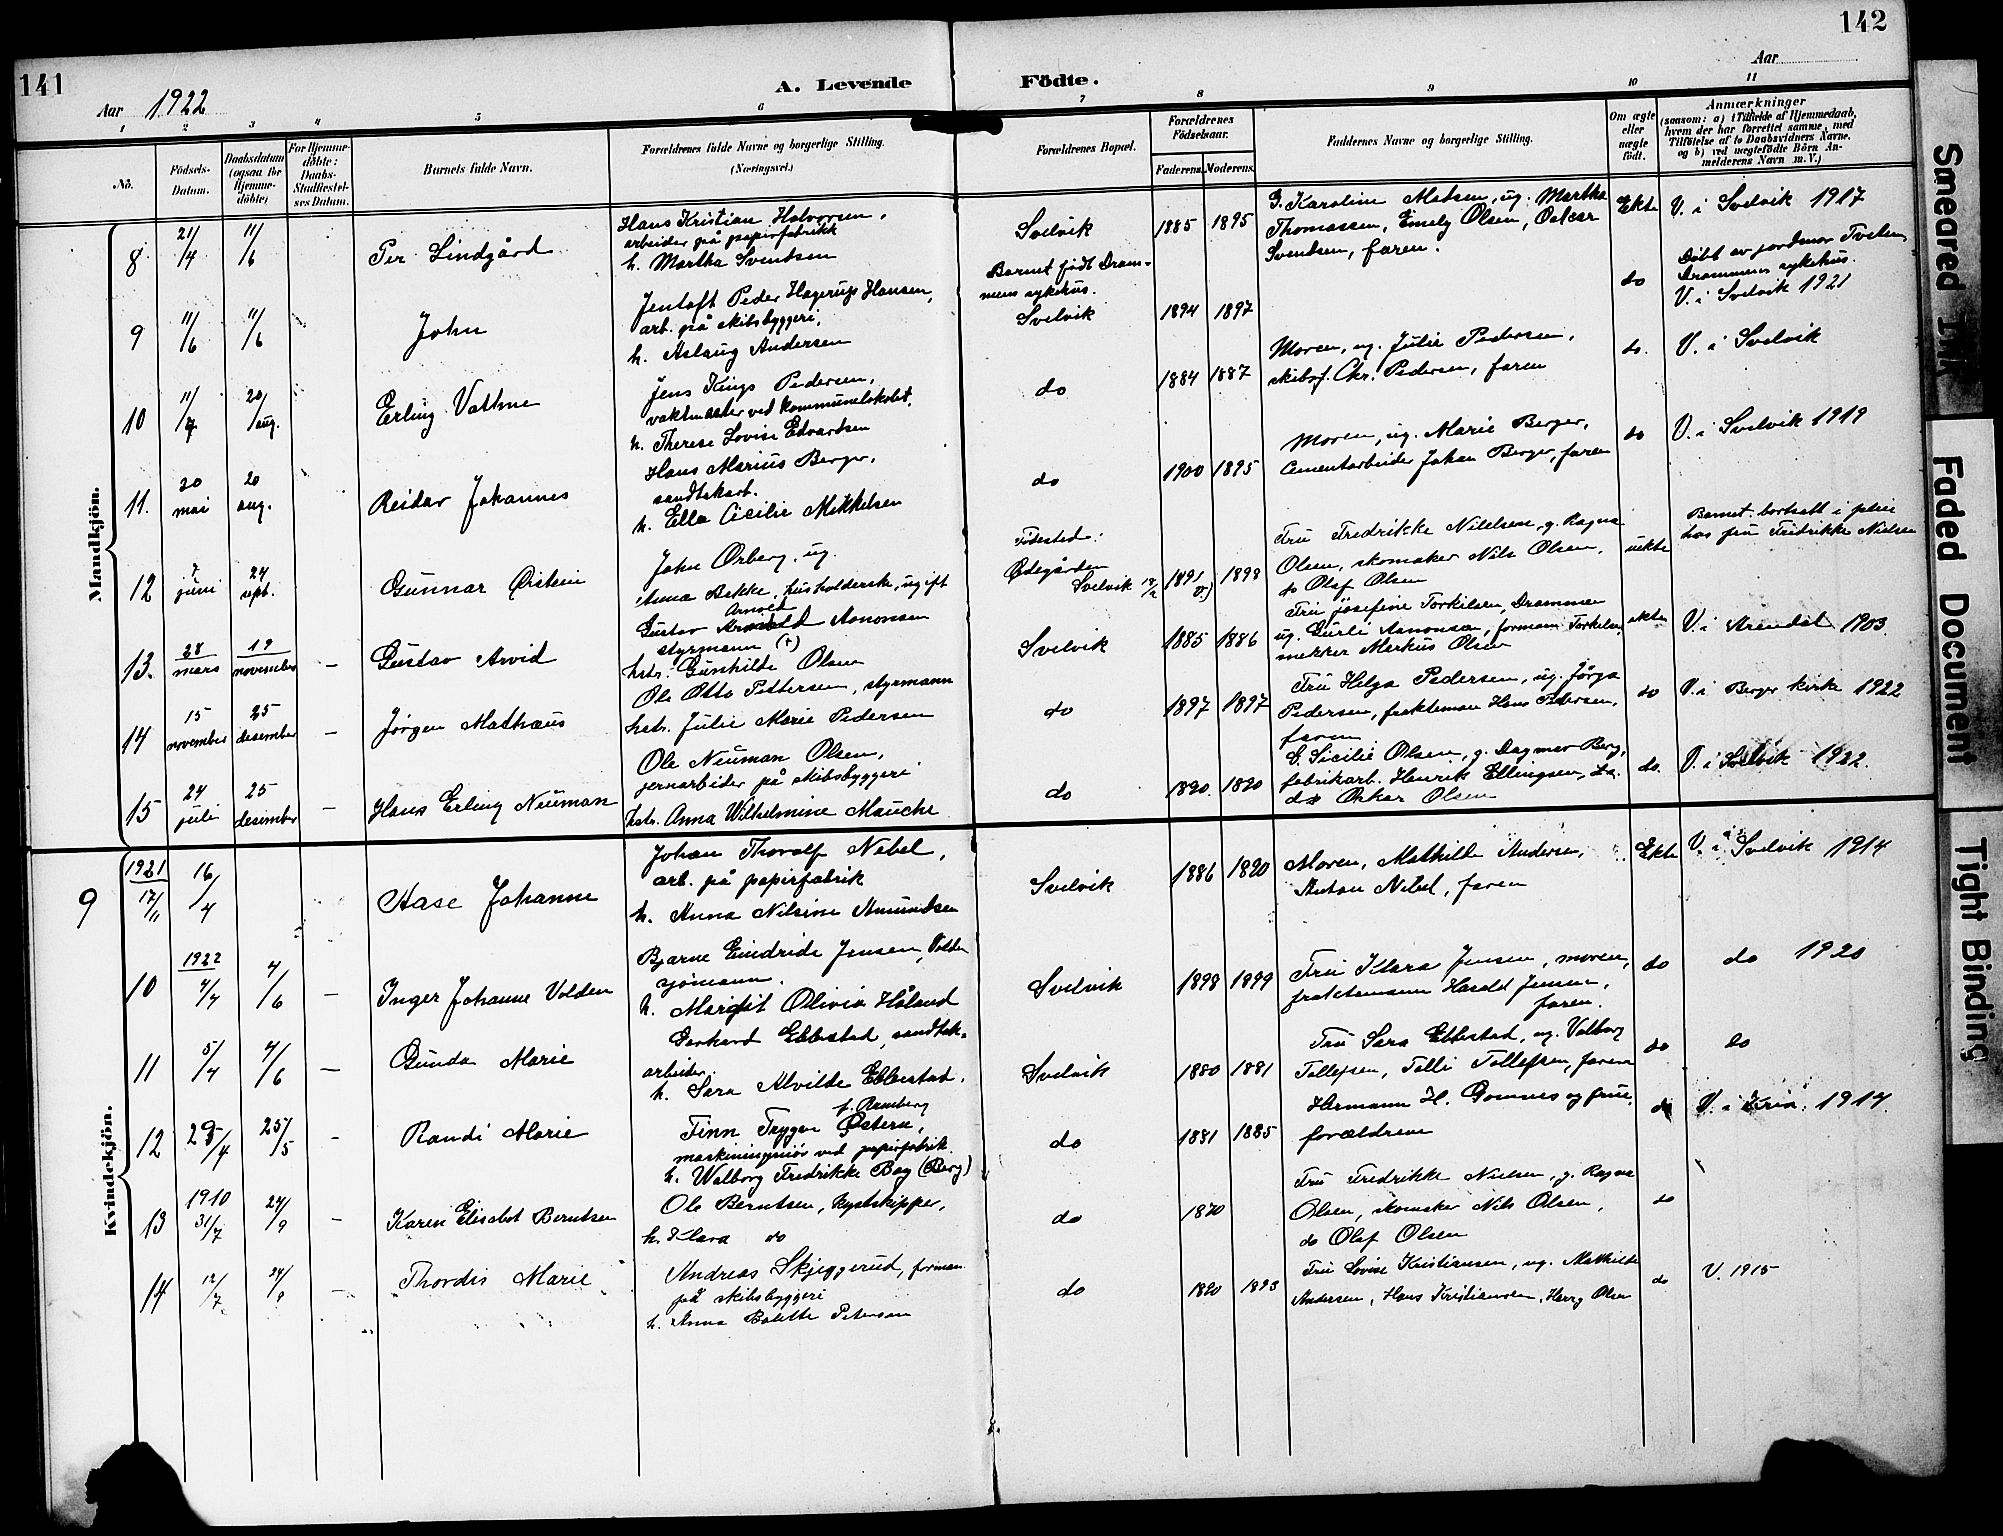 141
142
Aar 1922
A. Levende Födte.
Aar
1 2 3 4 5 6 7 8 9 10 11
No.
Födsels-Datum.
Daabsdatum (ogsaa for Hjemme-döbte)
For Hjemme-döbte: Daabs-Stadfæstel-ses Datum.
Barnets fulde Navn.
Forældrenes fulde Navne og borgerlige Stilling. (Næringsvei.)
Forældrenes Bopæl.
Forældrenes Födselsaar.
Faderens. Moderens.
Faddernes Navne og borgerlige Stilling.
Om ægte eller uægte födt.
Anmærkninger
(saasom: a) i Tilfælde af Hjemmedaab,
hvem der har forrettet samme, med
Tilföielse af to Daabsvidners Navne,
og b) ved uægtefödte Börn An-
melderens Navn m. V.)
Mandkjön.
8 21/4 11/6 Per Lindgård
Hans Kristian Halvorsen,
arbeider på papirfabrikk
h. Martha Svendsen
Svelvik 1885 1895
G. Karoline Madsen, ug. Martha
Thomassen, Emely Olsen, Oskar
Svendsen, faren.
Ekte V. i Svelvik 1917
9 11/6 11/6 John
Jentoft Peder Hagerup Hansen,
arb. på skibsbyggeri,
h. Aslaug Andersen
Barnet født Dram-
mens sykehus.
Svelvik 1894 1897
do
Døbt av jordmor Tveten
Drammens sykehus.
V. i Svelvik 1921
10 11/7 20/aug. Erling Vattne
Jens Kings Pedersen,
vaktmester ved kommunelokalet,
h. Therese Lovise Edvardsen
do 1884 1887
Moren, ug. Julie Pedersen,
skibsf. Chr. Pedersen, faren
do. V. i Svelvik
11. 20 mai 20 aug. Reidar Johannes
Hans Marius Berger,
sandtakarb.
h. Ella Cicilie Mikkelsen
do 1900 1895
Moren, ug. Marie Berger,
Cementarbeider Johan Berger, faren
do V. i Svelvik 1919
12 7 juni 24 sept. Gunnar Øistein
John Ørberg, ug.
Anna Bakke, husholderske, ugift
Fødested:
Ødegården
Svelvik 1891 1898
Fru Fredrikke Nielsen, g. Ragna
Olsen, skomaker Nils Olsen,
do Olaf Olsen
uekte
Barnet bortsatt i pleie
hos fru Fredrikke Nielsen
13. 28 mars 19 november – Gustav Arvid
Arnold
Gustav Aanonsen
styrmann (+)
hstr. Gunhilde Olsen
Svelvik 1885 1886
Fru Josefine Torkilsen, Drammen
ug. Gurli Aanonsen, formann Torkilsen,
snekker Markus Olsen
ekte V. i Arendal 1903.
14 15 november 25 desember – Jørgen Mathæus
Ole Otto Pettersen, styrmann
hstr. Julie Marie Pedersen
do 1897 1897
Fru Helga Pedersen, ug. Jørga
Pedersen, fraktemann Hans Pedersen,
faren
do V. i Berger kirke 1922
15 24 juli 25 desember – Hans Erling Neuman
Ole Neuman Olsen,
jernarbeider på skibsbyggeri
hstr. Anna Wilhelmine Mauche
do 1890. 1890
G. Sicilie Olsen, g. Dagmar Berg,
fabrikarb. Henrik Ellingsen,
do Oskar Olsen
do. V. i Svelvik 1922.
Kvindekjön.
9 1921 17/11 16/4 Aase Johanne
Johan Thoralf Nebel,
arb. på papirfabrik
h. Anna Nilsine Amundsen
Svelvik 1886 1890
Moren, Mathilde Andersen,
Anton Nebel, faren
Ekte V. i Svelvik 1914
10 1922 4/4 4/6 – Inger Johanne Volden
Bjarne Eindride Jensen, Volden
sjømann.
h. Margit Olivia Håland
Svelvik 1898 1899
Fru Klara Jensen, moren,
fraktemann Harald Jensen,
faren.
do do 1920
11 5/4 4/6 – Gunda Marie
Gerhard Ebbestad, sandtak-
arbeider.
h. Sara Alvilde Ebbestad,
f. Ramberg
Svelvik 1880 1881
Fru Sara Ebbestad, ug. Valborg
Tollefsen, Tolli Tollefsen, faren
do do
12 25/4 25/5 – Randi Marie
Finn Trygve Østern,
maskiningeniør ved papirfabrik.
h. Walborg Fredrikke Bay (Berg)
do 1881 1885
Hermann H. Gomnes og frue,
forældrene
do V. i Kria. 1917.
13 1910 31/7 24/9 – Karen Elisabet Berntsen
Ole Berntsen, kystskipper,
h. Klara do
do 1870
Fru Fredrikke Nielsen, g. Ragna
Olsen, skomaker Nils Olsen,
do Olaf Olsen
do
14 12/7 24/9 – Thordis Marie
Andreas Skjeggerud, forman
på skibsbyggeri
h. Anna Bolette Petersen
do 1890 1893
Fru Lovise Kristiansen, ug. Mathilde
Andersen, Hans Kristiansen, Harry Olsen
do V. 1915
9
Smeared Ink
Faded Document
Tight Binding